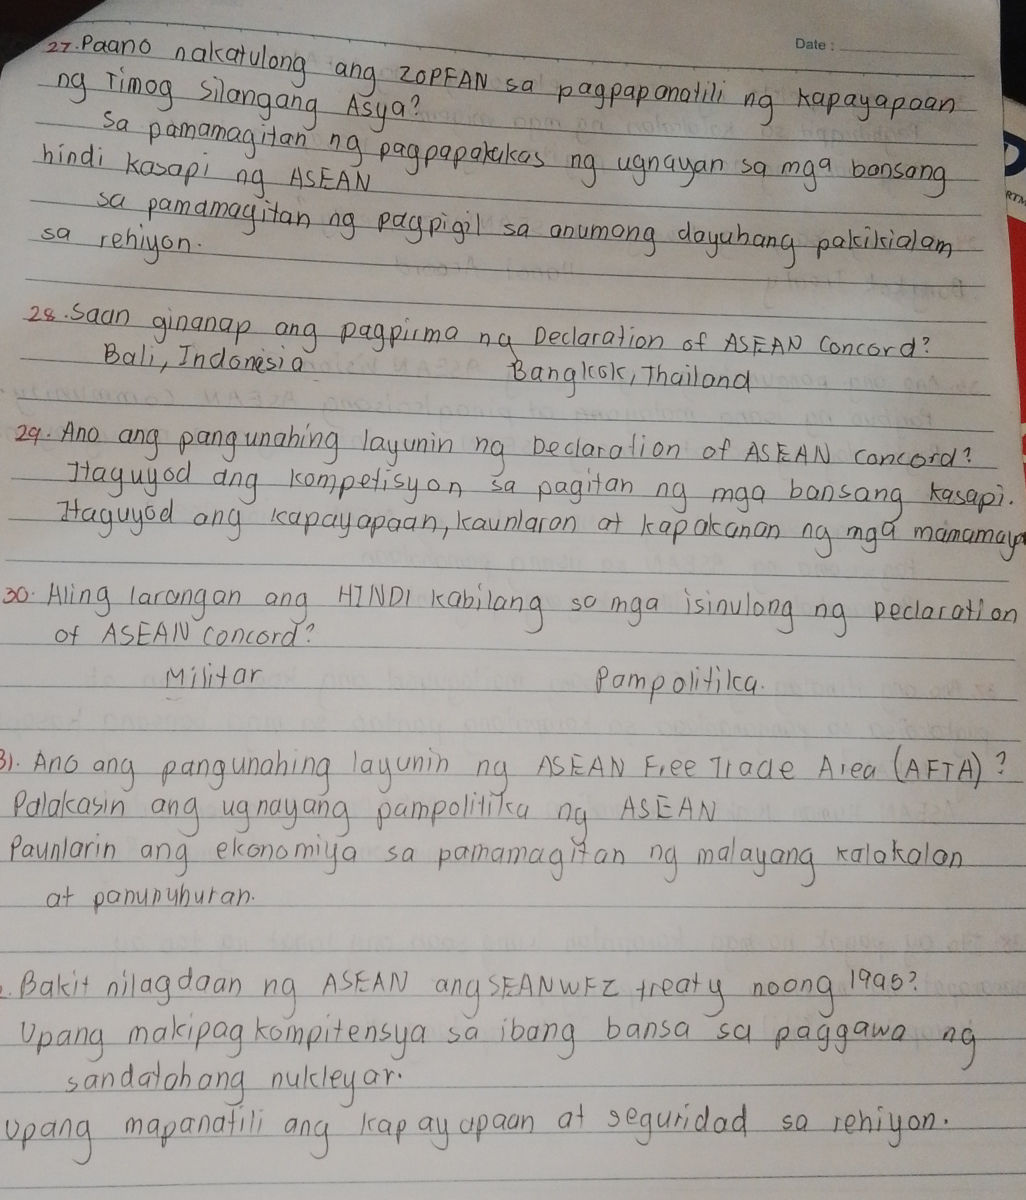 Date :
27. Paano nakatulong ang ZOPFAN sa pagpapanatili ng kapayapaan
ng Timog Silangang Asya?
Sa pamamagitan ng pagpapalukas ng ugnayan sa mga bansang
hindi kasapi ng ASEAN
sa pamamagitan ng pagpigil sa anumang dayuhang pakikialam
sa rehiyon.
28. Saan ginanap ang pagpirma ng Declaration of ASEAN Concord?
Bali, Indonesia Bangkok, Thailand
29. Ano ang pangunahing layunin ng Declaration of ASEAN Concord?
Itaguyod ang kompetisyon sa pagitan ng mga bansang kasapi.
Itaguyod ang kapayapaan, kaunlaran at kapakanan ng mga mamamaya
30. Aling larangan ang HINDI kabilang sa mga isinulong ng Declaration
of ASEAN Concord?
Militar Pampolitika.
31. Ano ang pangunahing layunin ng ASEAN Free Trade Area (AFTA)?
Palakasin ang ugnayang pampolitika ng ASEAN
Paunlarin ang ekonomiya sa pamamagitan ng malayang kalakalan
at panunuhuran.
. Bakit nilagdaan ng ASEAN ang SEANWFZ treaty noong 1995?
Upang makipagkompitensya sa ibang bansa sa paggawa ng
sandatahang nukleyar.
Upang mapanatili ang kapayapaan at seguridad sa rehiyon.